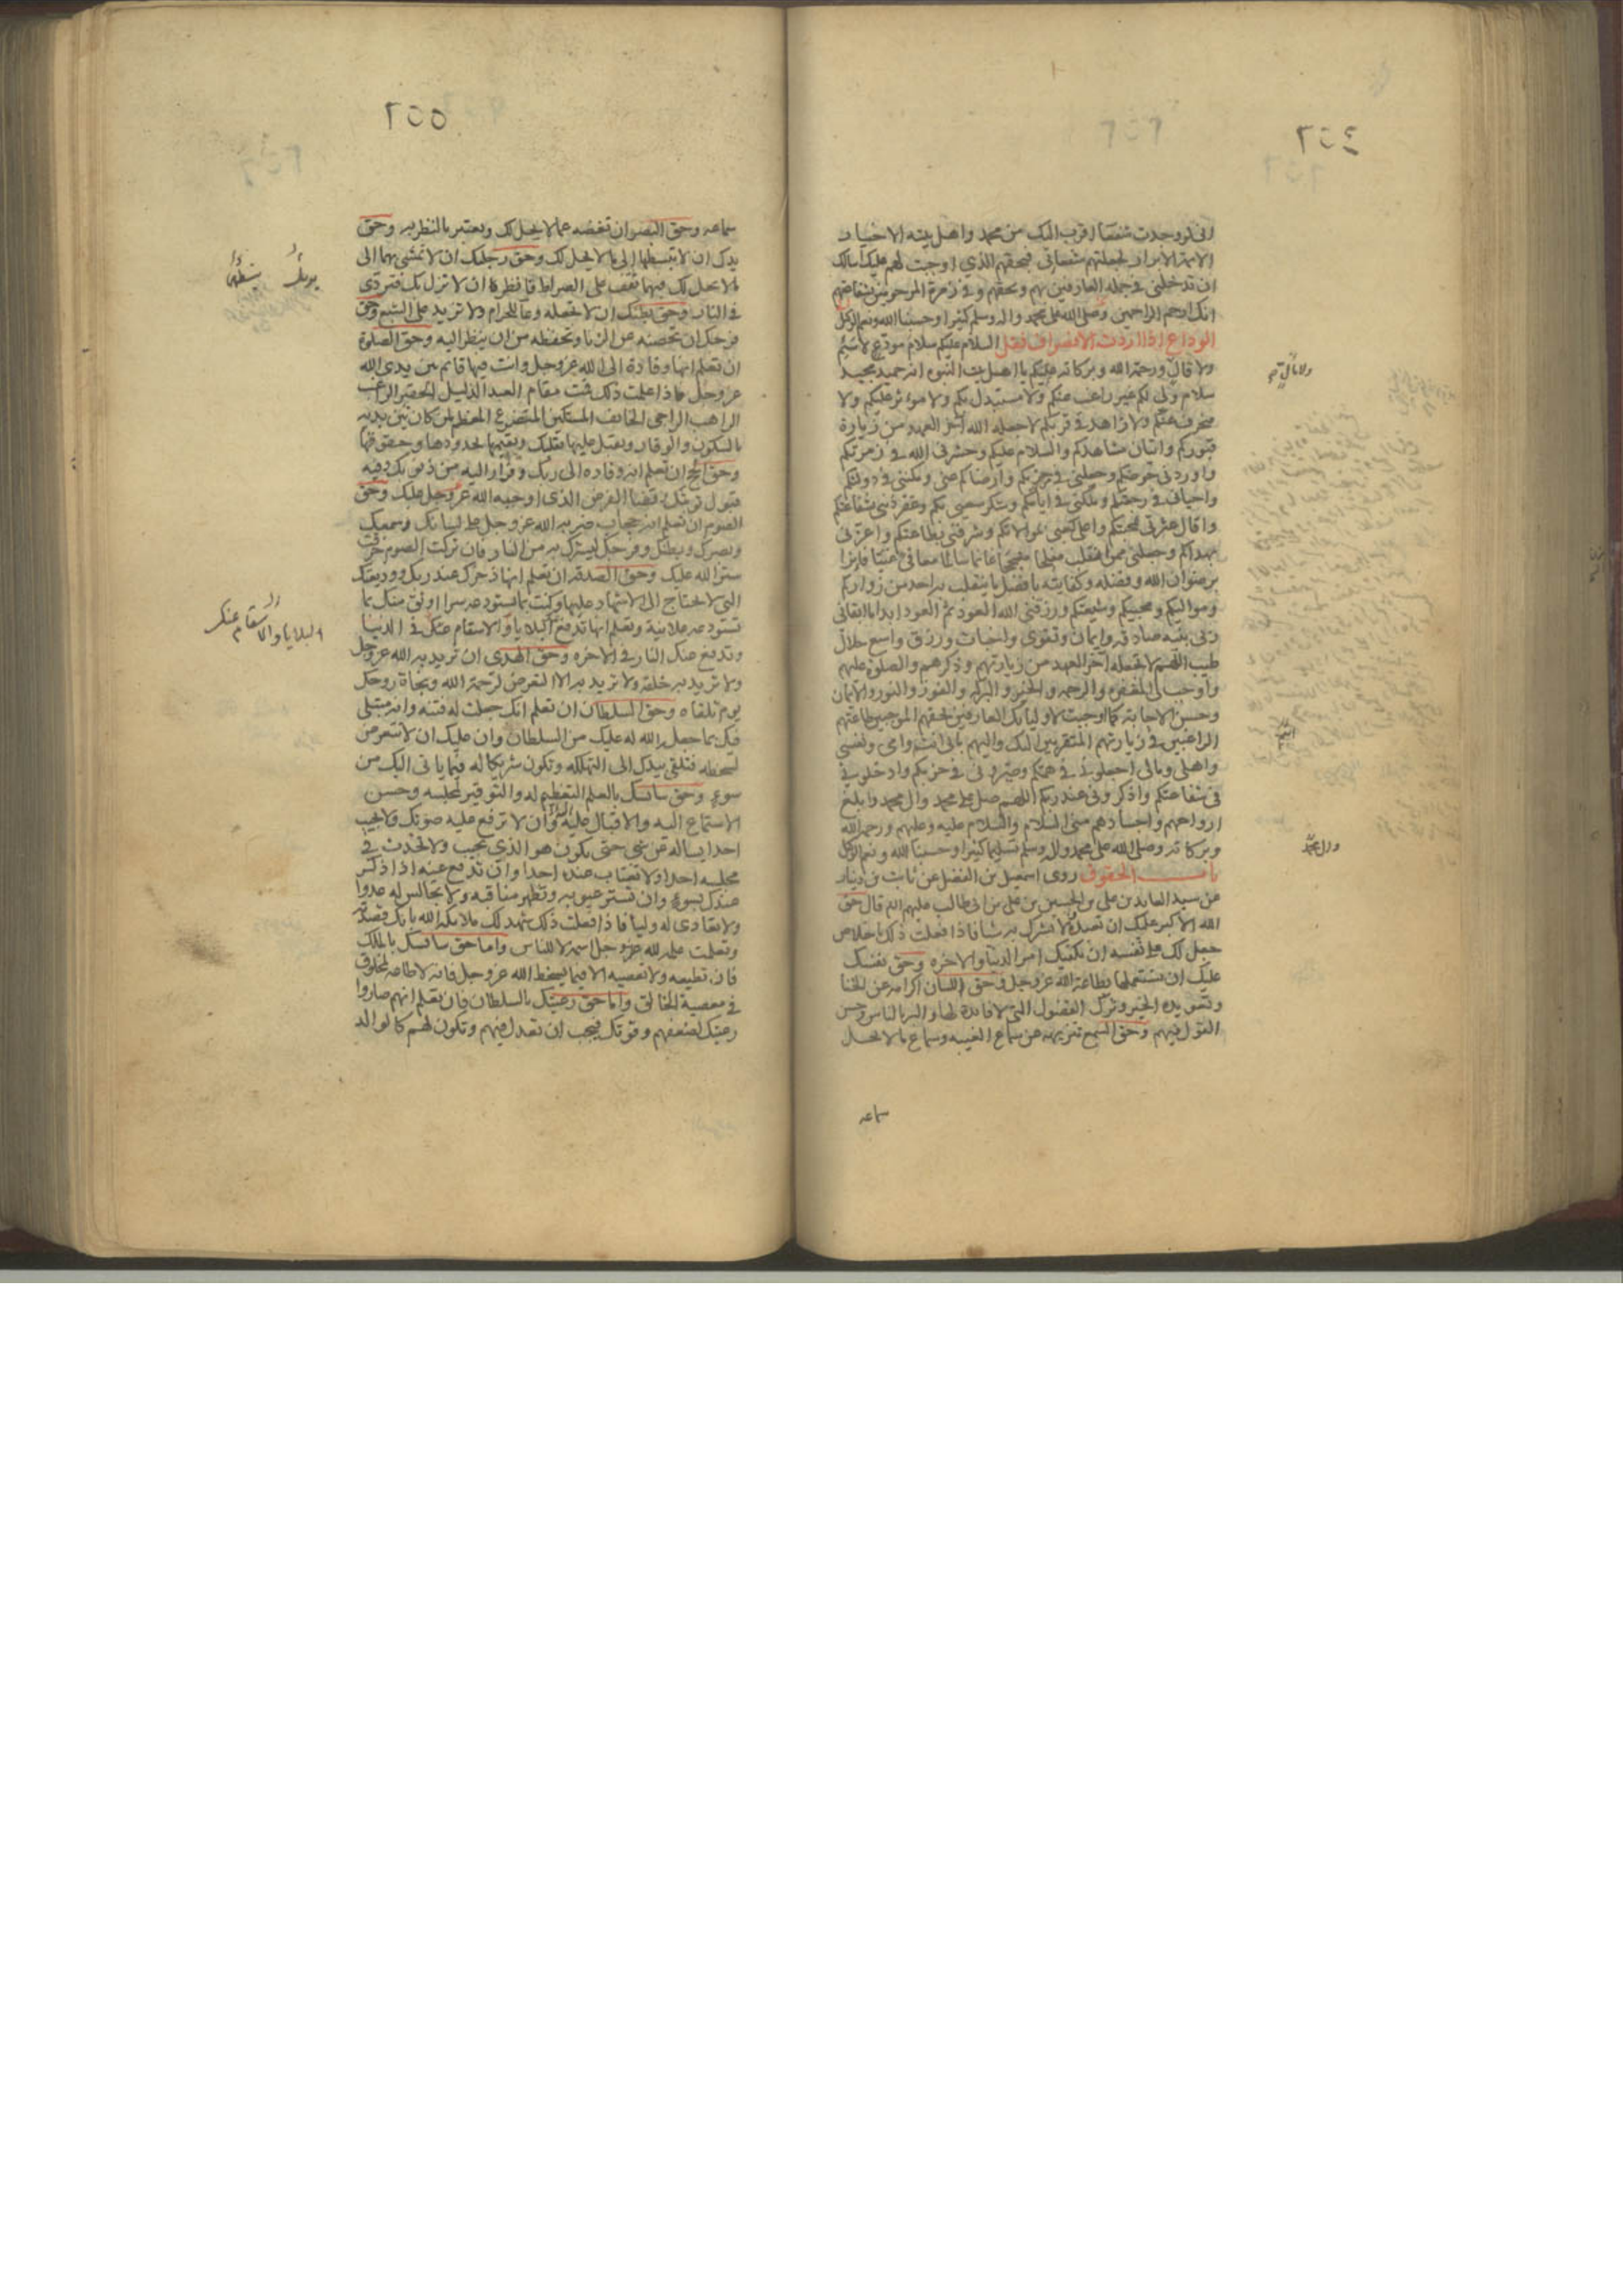 انی لو وجدت شفعا اقرب الیک من محمد واهل بیته الاخیار
الائمة الابرار لجعلتهم شفعائی فبحقهم الذی اوجبت لهم علیک اسالک
ان تدخلنی فی جمله العارفین بهم وبحقهم وفی زمرة المرحومین بشفاعتهم
انک ارحم الراحمین وصلی الله علی محمد واله وسلم کثیرا وحسبنا الله ونعم الوکیل
الوداع اذا اردت الانصراف فقل السلام علیکم سلام مودع لا سئم
ولا قال ورحمة الله وبرکاته علیکم یا اهل بیت النبوه انه حمید مجید
سلام ولی لکم غیر راغب عنکم ولا مستبدل بکم ولا موثر علیکم ولا
منحرف عنکم ولا زاهد فی قربکم لا جعله الله اخر العهد من زیارة
قبورکم واتیان مشاهدکم والسلام علیکم وحشرنی الله فی زمرتکم
واوردنی حوضکم وجعلنی فی حزبکم وارضاکم عنی ومکننی فی دولتکم
واحیانی فی رجعتکم وملکنی فی ایامکم وشکر سعیی بکم وغفر ذنبی بشفاعتکم
واقال عثرتی بمحبتکم واعلی کعبی بموالاتکم وشرفنی بطاعتکم واعزنی
بهداکم وجعلنی ممن انقلب مفلحا منجحا غانما سالما معافی غنیا فایزا
برضوان الله وفضله وکفایته بافضل ما ینقلب به احد من زوارکم
وموالیکم ومحبیکم وشیعتکم ورزقنی الله العود ثم العود ابدا ما ابقانی
ربی بنیه صادقه وایمان وتقوی واخبات ورزق واسع حلال
طیب اللهم لا تجعله اخر العهد من زیارتهم وذکرهم والصلوة علیهم
واوجب لی المغفره والرحمه والخیر والبرکه والفوز والنور والایمان
وحسن الاجابه کما اوجبت لاولیائک العارفین بحقهم الموجبین طاعتهم
الراغبین فی زیارتهم المتقربین الیک والیهم بابی انتم وامی ونفسی
واهلی ومالی اجعلونی فی همکم وصیرونی فی حزبکم وادخلونی
فی شفاعتکم واذکرونی عند ربکم اللهم صل علی محمد وال محمد وابلغ
ارواحهم واجسادهم منی السلام والسلام علیه وعلیهم ورحمه الله
وبرکاته وصلی الله علی محمد واله وسلم تسلیما کثیرا وحسبنا الله ونعم الوکیل
باب الحقوق روی اسمعیل بن الفضل عن ثابت بن دینار
عن سید العابدین علی بن الحسین بن علی بن ابی طالب علیهم السلم قال حق
الله الاکبر علیک ان تعبده ولا تشرک به شیا فاذا فعلت ذلک باخلاص
جعل لک علی نفسه ان یکفیک امر الدنیا والاخره وحق نفسک
علیک ان تستعملها بطاعة الله عز وجل وحق اللسان اکرامه عن الخنا
وتعویده الخیر وترک الفضول التی لا فایده لها والبر بالناس وحسن
القول فیهم وحق السمع تنزیهه عن سماع الغیبه وسماع ما لا یحل
سماعه
سماعه وحق البصر ان تغضه عما لا یحل لک وتعتبر بالنظر به وحق
یدک ان لا تبسطها الی ما لا یحل لک وحق رجلیک ان لا تمشی بهما الی
ما لا یحل لک فبهما تقف علی الصراط فانظر ان لا تزل بک فتردی
فی النار وحق بطنک ان لا تجعله وعاء للحرام ولا تزید علی الشبع وحق
فرجک ان تحصنه عن الزنا وتحفظه من ان ینظر الیه وحق الصلوة
ان تعلم انها وفادة الی الله عز وجل وانت فیها قائم بین یدی الله
عز وجل فاذا علمت ذلک قمت مقام العبد الذلیل الحقیر الراغب
الراهب الراجی الخائف المستکین المتضرع المعظم لمن کان بین یدیه
بالسکون والوقار وتقبل علیها بقلبک وتقیمها بحدودها وحقوقها
وحق الحج ان تعلم انه وفاده الی ربک وفرار الیه من ذنوبک وفیه
قبول توبتک وقضا الفرض الذی اوجبه الله عز وجل علیک وحق
الصوم ان تعلم انه حجاب ضربه الله عز وجل علی لسانک وسمعک
وبصرک وبطنک وفرجک لیسترک به من النار فان ترکت الصوم خرقت
ستر الله علیک وحق الصدقه ان تعلم انها ذخرک عند ربک وودیعتک
التی لا تحتاج الی الاشهاد علیها وکنت بما تستودعه سرا اوثق منک بما
تستودعه علانیة وتعلم انها تدفع البلایا والاسقام عنک فی الدنیا
وتدفع عنک النار فی الاخره وحق الهدی ان ترید به الله عز وجل
ولا ترید به خلقه ولا ترید به الا التعرض لرحمة الله ونجاة روحک
یوم تلقاه وحق السلطان ان تعلم انک جعلت له فتنه وانه مبتلی
فیک بما جعل الله له علیک من السلطان وان علیک ان لا تتعرض
لسخطه فتلقی بیدک الی التهلکه وتکون شریکا له فیما یاتی الیک من
سوء وحق سائسک بالعلم التعظیم له والتوقیر لمجلسه وحسن
الاستماع الیه والاقبال علیه وان لا ترفع علیه صوتک ولا تجیب
احدا یساله عن شی حتی یکون هو الذی یجیب ولا تحدث فی
مجلسه احدا ولا تغتاب عنده احدا وان تدفع عنه اذا ذکر
عندک بسوء وان تستر عیوبه وتظهر مناقبه ولا تجالس له عدوا
ولا تعادی له ولیا فاذا فعلت ذلک شهد لک ملائکه الله بانک قصدته
وتعلمت علمه لله عز وجل اسمه لا للناس واما حق سائسک بالملک
فان تطیعه ولا تعصیه الا فیما یسخط الله عز وجل فانه لا طاعه لمخلوق
فی معصیة الخالق واما حق رعیتک بالسلطان فان تعلم انهم صاروا
رعیتک لضعفهم وقوتک فیجب ان تعدل فیهم وتکون لهم کالوالد
البلایا والاسقام عنک